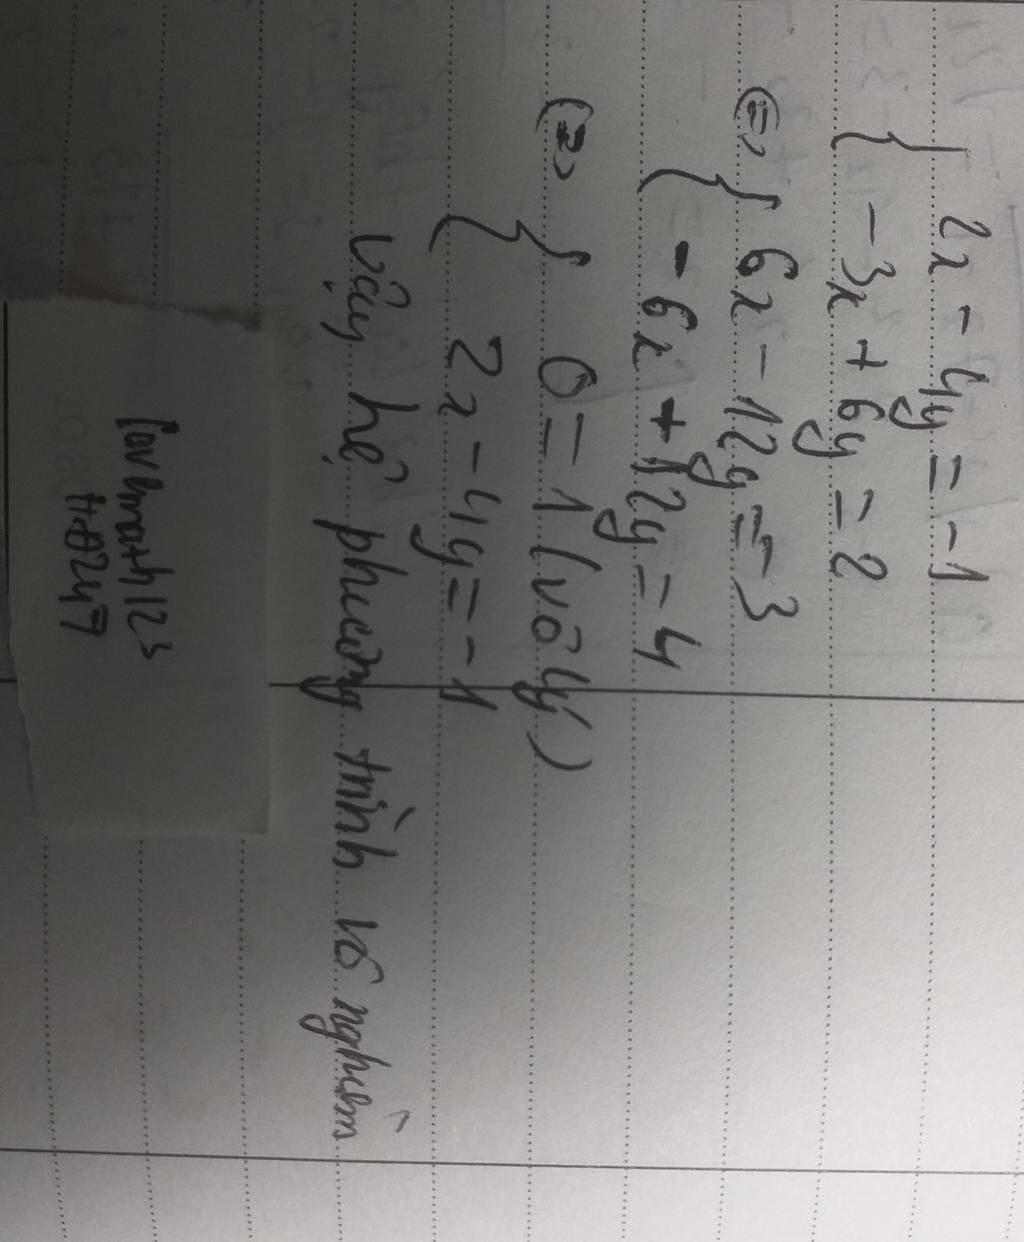 { 2x - 4y = -1
{ -3x + 6y = 2
(=) { 6x - 12y = -3
{ -6x + 12y = 4
(=) { 0 = 1 (vô lý)
{ 2x - 4y = -1
Vậy hệ phương trình vô nghiệm
lovemath123